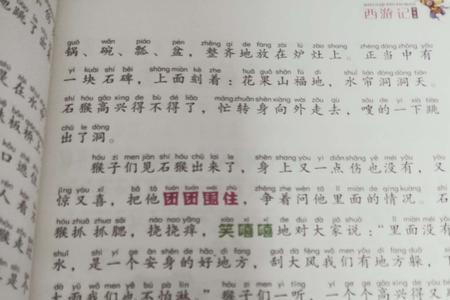 西游记
guō wǎn piáo pén zhěng qí de fàng zài lú zào shang zhèng dāng zhōng yǒu
锅、碗、瓢、盆，整齐地放在炉灶上。正当中有
yí kuài shí bēi shàng miàn kè zhe huā guǒ shān fú dì shuǐ lián dòng dòng tiān
一块石碑，上面刻着：花果山福地，水帘洞洞天。
shí hóu gāo xìng de bù dé liǎo máng zhuǎn shēn xiàng wài zǒu qù sōu de yí xià tiào
石猴高兴得不得了，忙转身向外走去，嗖的一下跳
chū le dòng
出了洞。
hóu zi men jiàn shí hóu chū lai le shēn shang yòu yì diǎn shāng yě méi yǒu yòu
猴子们见石猴出来了，身上又一点伤也没有，又
jīng yòu xǐ bǎ tā tuán tuán wéi zhù zhēng zhe wèn tā lǐ miàn de qíng kuàng
惊又喜，把他团团围住，争着问他里面的情况。石
hóu zhuā zhua sāi náo nao yǎng xiào xī xī de duì dà jiā shuō
猴抓抓腮，挠挠痒，笑嘻嘻地对大家说："里面没有
水，是一个安身的好地方，刮大风我们有地方躲，下
大雨我们也不怕淋。"猴子们一听，一个个高兴得